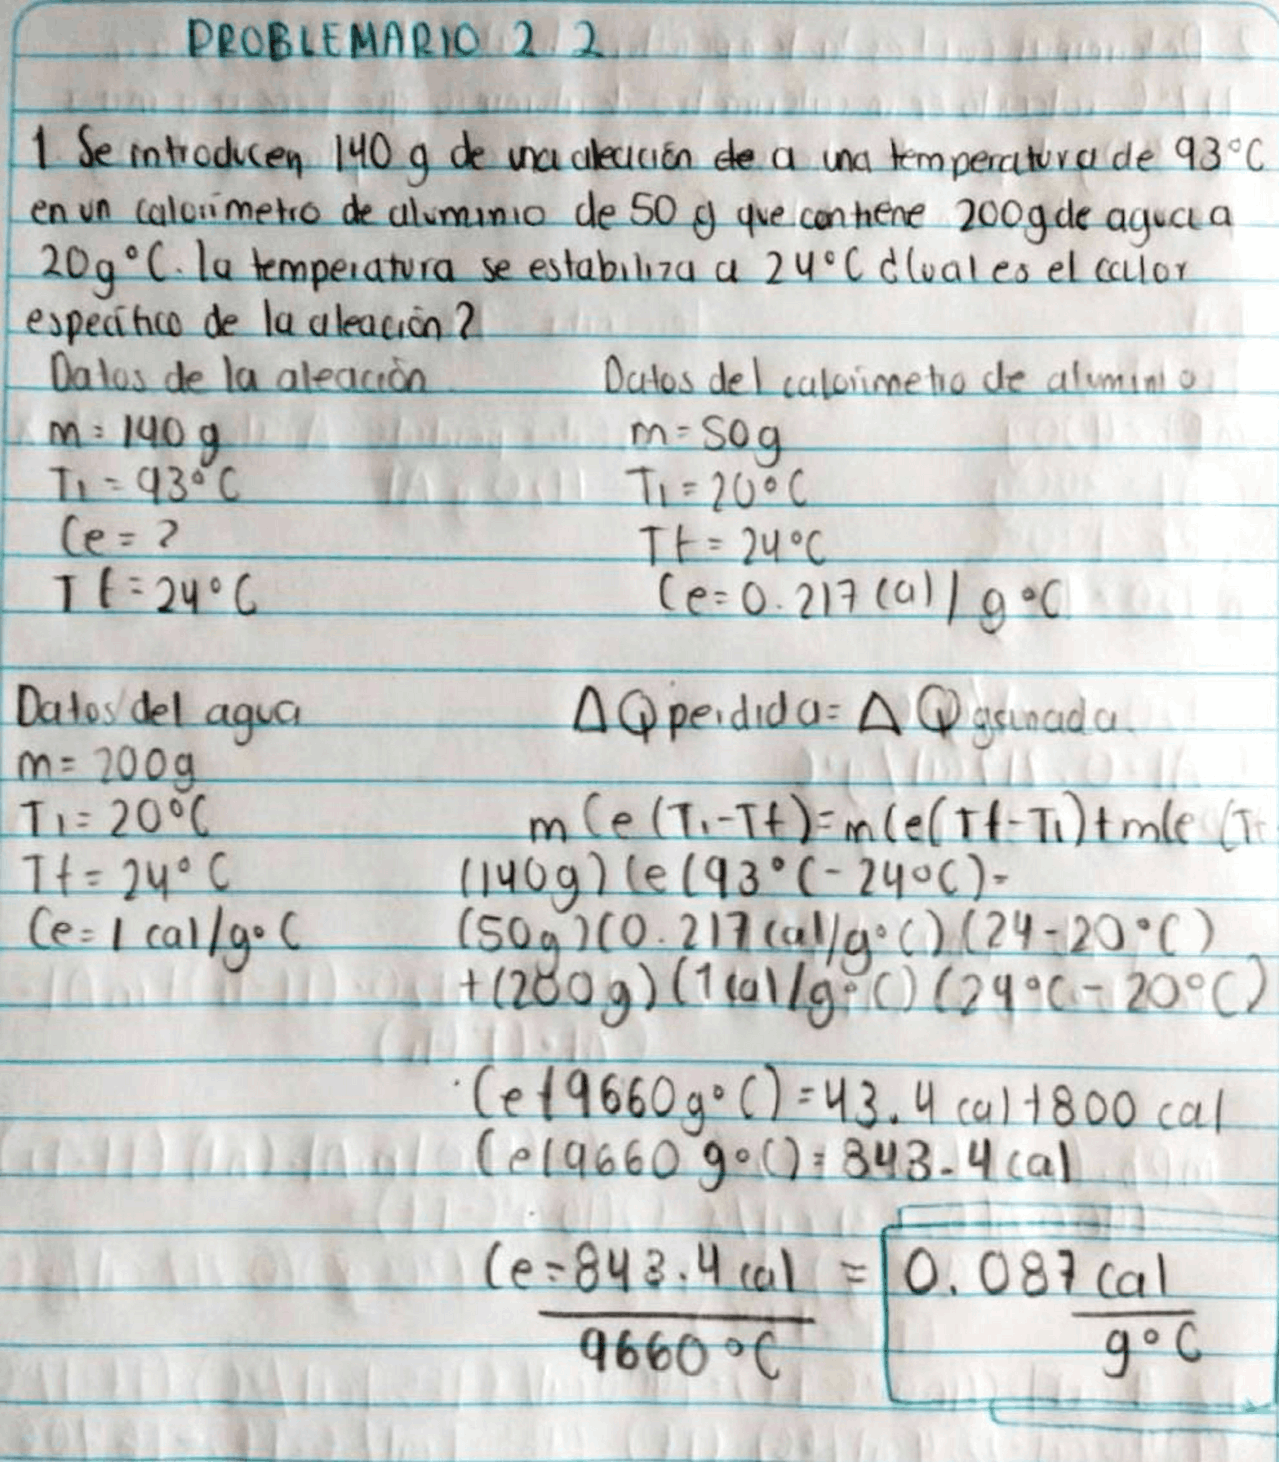 PROBLEMARIO 2 2
1 Se introducen 140 g de una aleación de a una temperatura de 93°C
en un calorimetro de aluminio de 50 g que contiene 200g de agua a
20g°C. la temperatura se estabiliza a 24°C ¿Cual es el calor
especifico de la aleación?
Datos de la aleación
m = 140 g
T1 = 93°C
Ce = ?
Tf = 24°C
Datos del calorimetro de aluminio
m = 50g
T1 = 20°C
Tf = 24°C
Ce = 0.217 cal / g °C
Datos del agua
m = 200g
T1 = 20°C
Tf = 24°C
Ce = 1 cal/g°C
ΔQ perdida = ΔQ ganada
m Ce (T1-Tf) = mCe(Tf-T1) + mCe (T
(140g) Ce (93°C - 24°C) =
(50g)(0.217 cal/g°C) (24-20°C)
+(200g) (1 cal/g°C) (24°C - 20°C)
Ce (9660g°C) = 43.4 cal + 800 cal
Ce (9660 g°C) = 843.4 cal
Ce = 843.4 cal = 0.087 cal
9660 °C g°C